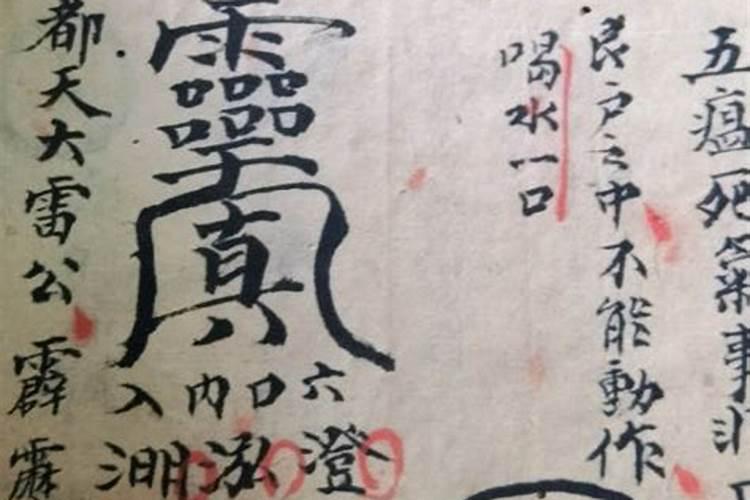 五瘟死氣事
艮戶之中不能動作
喝水一口
真
六口内入
澄泓淜
都天大雷公霹